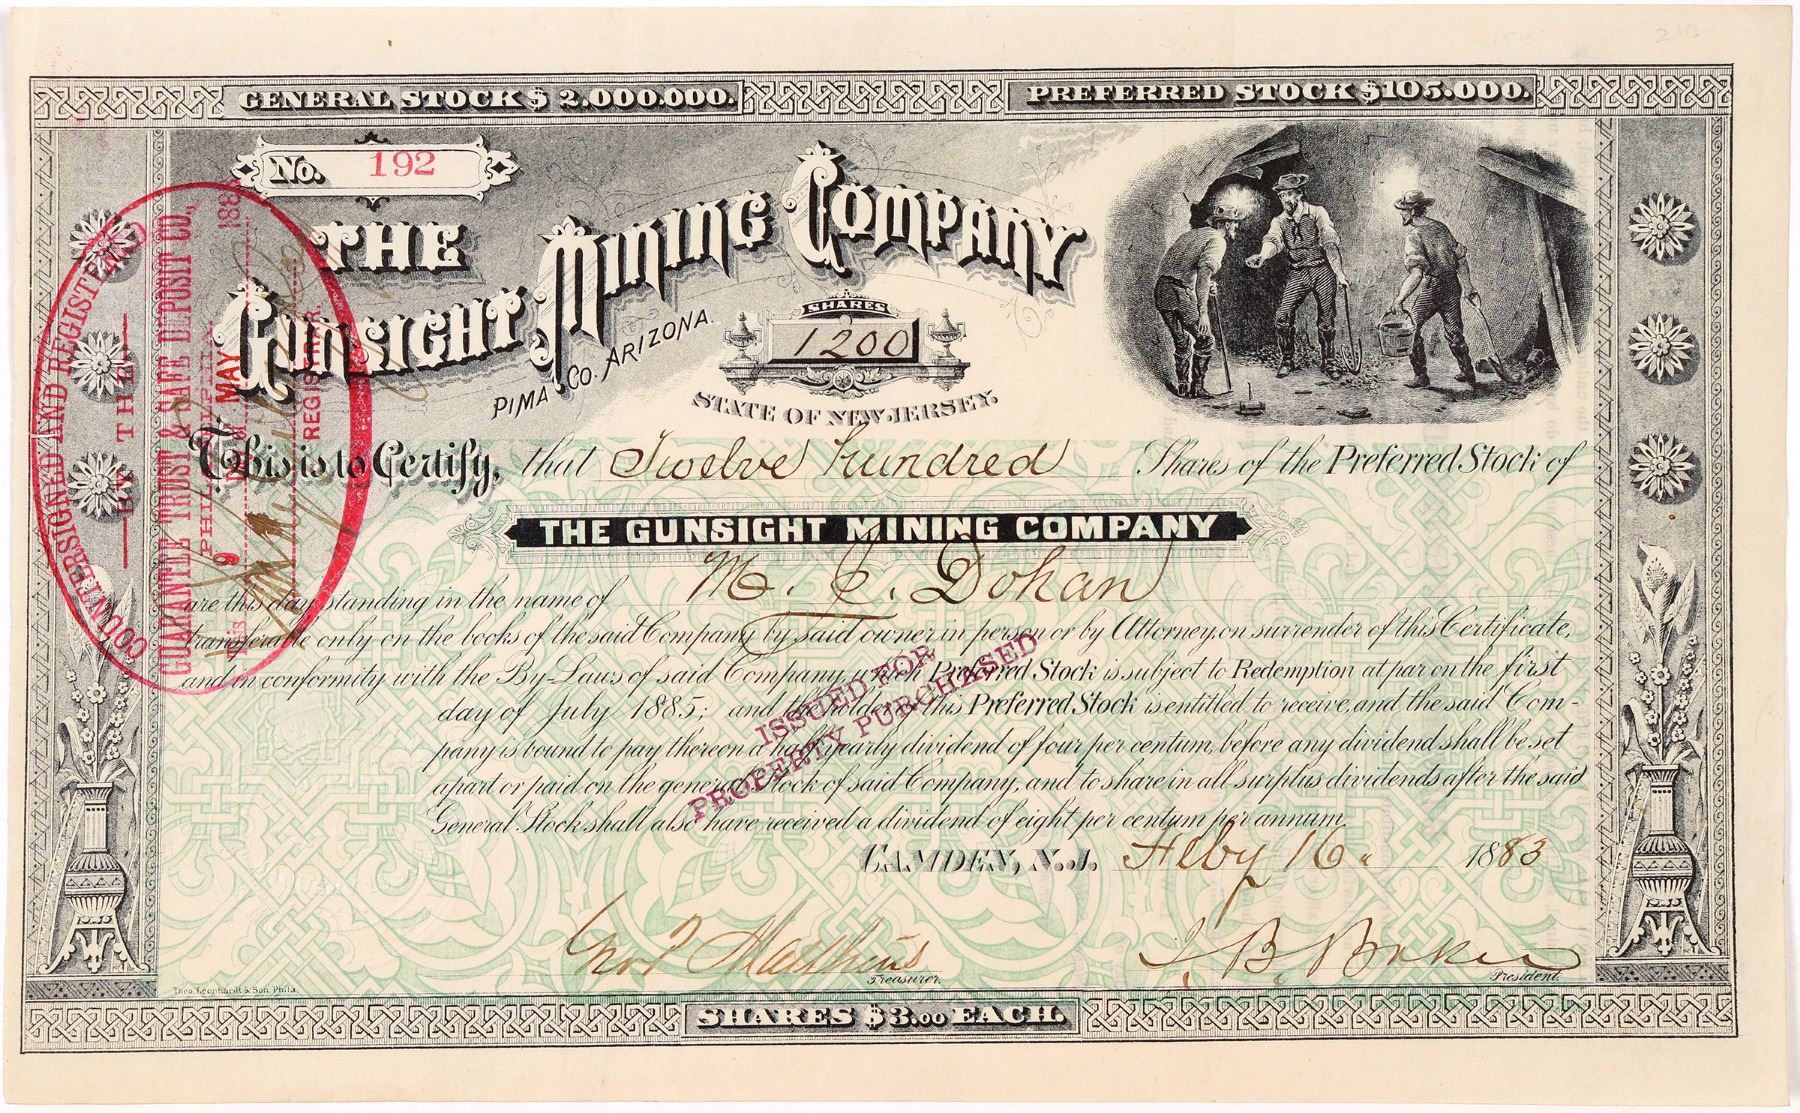 GENERAL STOCK $ 2.000.000.
PREFERRED STOCK $105.000.
No. 192
THE
GUNSIGHT MINING COMPANY
PIMA Co. ARIZONA.
SHARES
1200
STATE OF NEW JERSEY.
This is to Certify, that Twelve hundred Shares of the Preferred Stock of
THE GUNSIGHT MINING COMPANY
are this day standing in the name of M. Dohan
transferable only on the books of the said Company by said owner in person or by Attorney, on surrender of this Certificate,
and in conformity with the By-Laws of said Company, which Preferred Stock is subject to Redemption at par on the first
day of July 1885; and the holder of this Preferred Stock is entitled to receive, and the said Com-
pany is bound to pay thereon a half yearly dividend of four per centum, before any dividend shall be set
apart or paid on the general Stock of said Company, and to share in all surplus dividends after the said
General Stock shall also have received a dividend of eight per centum per annum.
ISSUED FOR
PROPERTY PURCHASED
CAMDEN, N.J. Feby 16. 1883
Treasurer.
J. B. Baker
President.
Theo. Leonhardt & Son. Phila.
SHARES $3.00 EACH.
COUNTERSIGNED AND REGISTERED
BY THE
GUARANTEE TRUST & SAFE DEPOSIT CO.,
PHILADELPHIA.
This 9 DAY MAY 188
REGISTRAR.